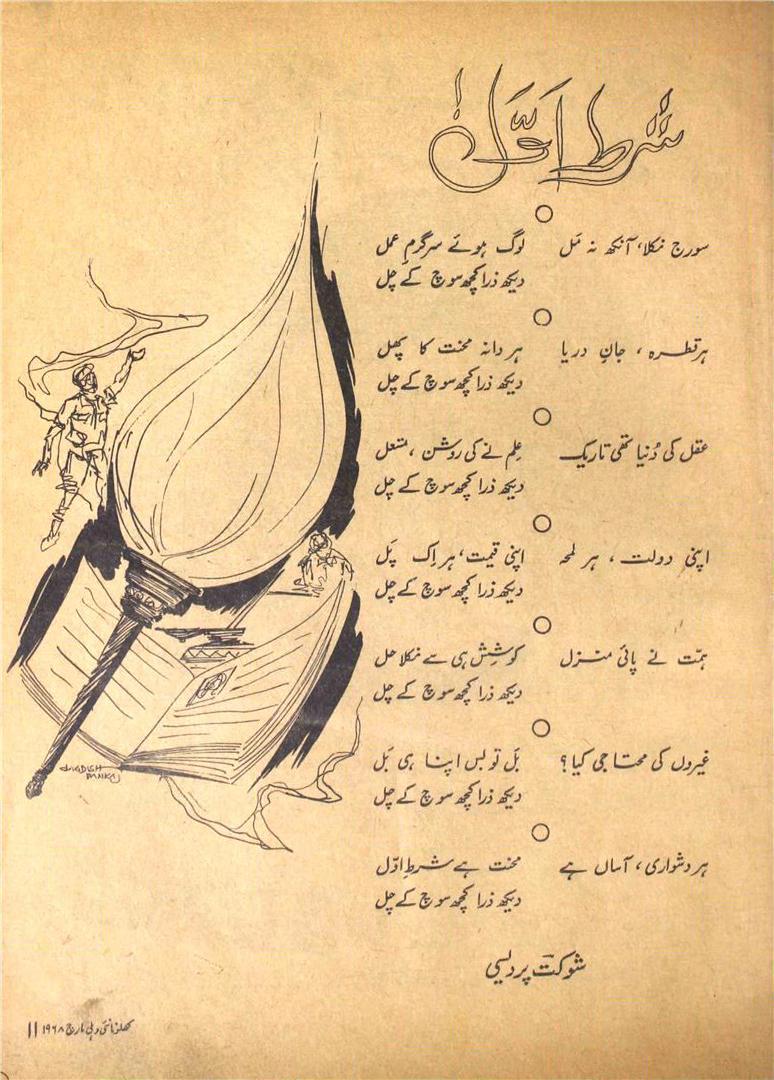 شرطِ اَوّل
سورج نکلا، آنکھ نہ مَل لوگ ہوئے سرگرمِ عمل
دیکھ ذرا کچھ سوچ کے چل
ہر قطرہ ، جانِ دریا ہر دانہ محنت کا پھل
دیکھ ذرا کچھ سوچ کے چل
عقل کی دُنیا تھی تاریک عِلم نے کی روشن ، مشعل
دیکھ ذرا کچھ سوچ کے چل
اپنی دولت ، ہر لمحہ اپنی قیمت، ہر اِک پَل
دیکھ ذرا کچھ سوچ کے چل
ہمّت نے پائی منزل کوشش ہی سے نکلا حل
دیکھ ذرا کچھ سوچ کے چل
غیروں کی محتاجی کیا؟ بَل تو بس اپنا ہی بَل
دیکھ ذرا کچھ سوچ کے چل
ہر دشواری، آساں ہے محنت ہے شرطِ اوّل
دیکھ ذرا کچھ سوچ کے چل
شوکت پردیسی
JAGDISH
PANKAJ
کھلونا نئی دہلی مارچ ۱۹۶۸ ۱۱